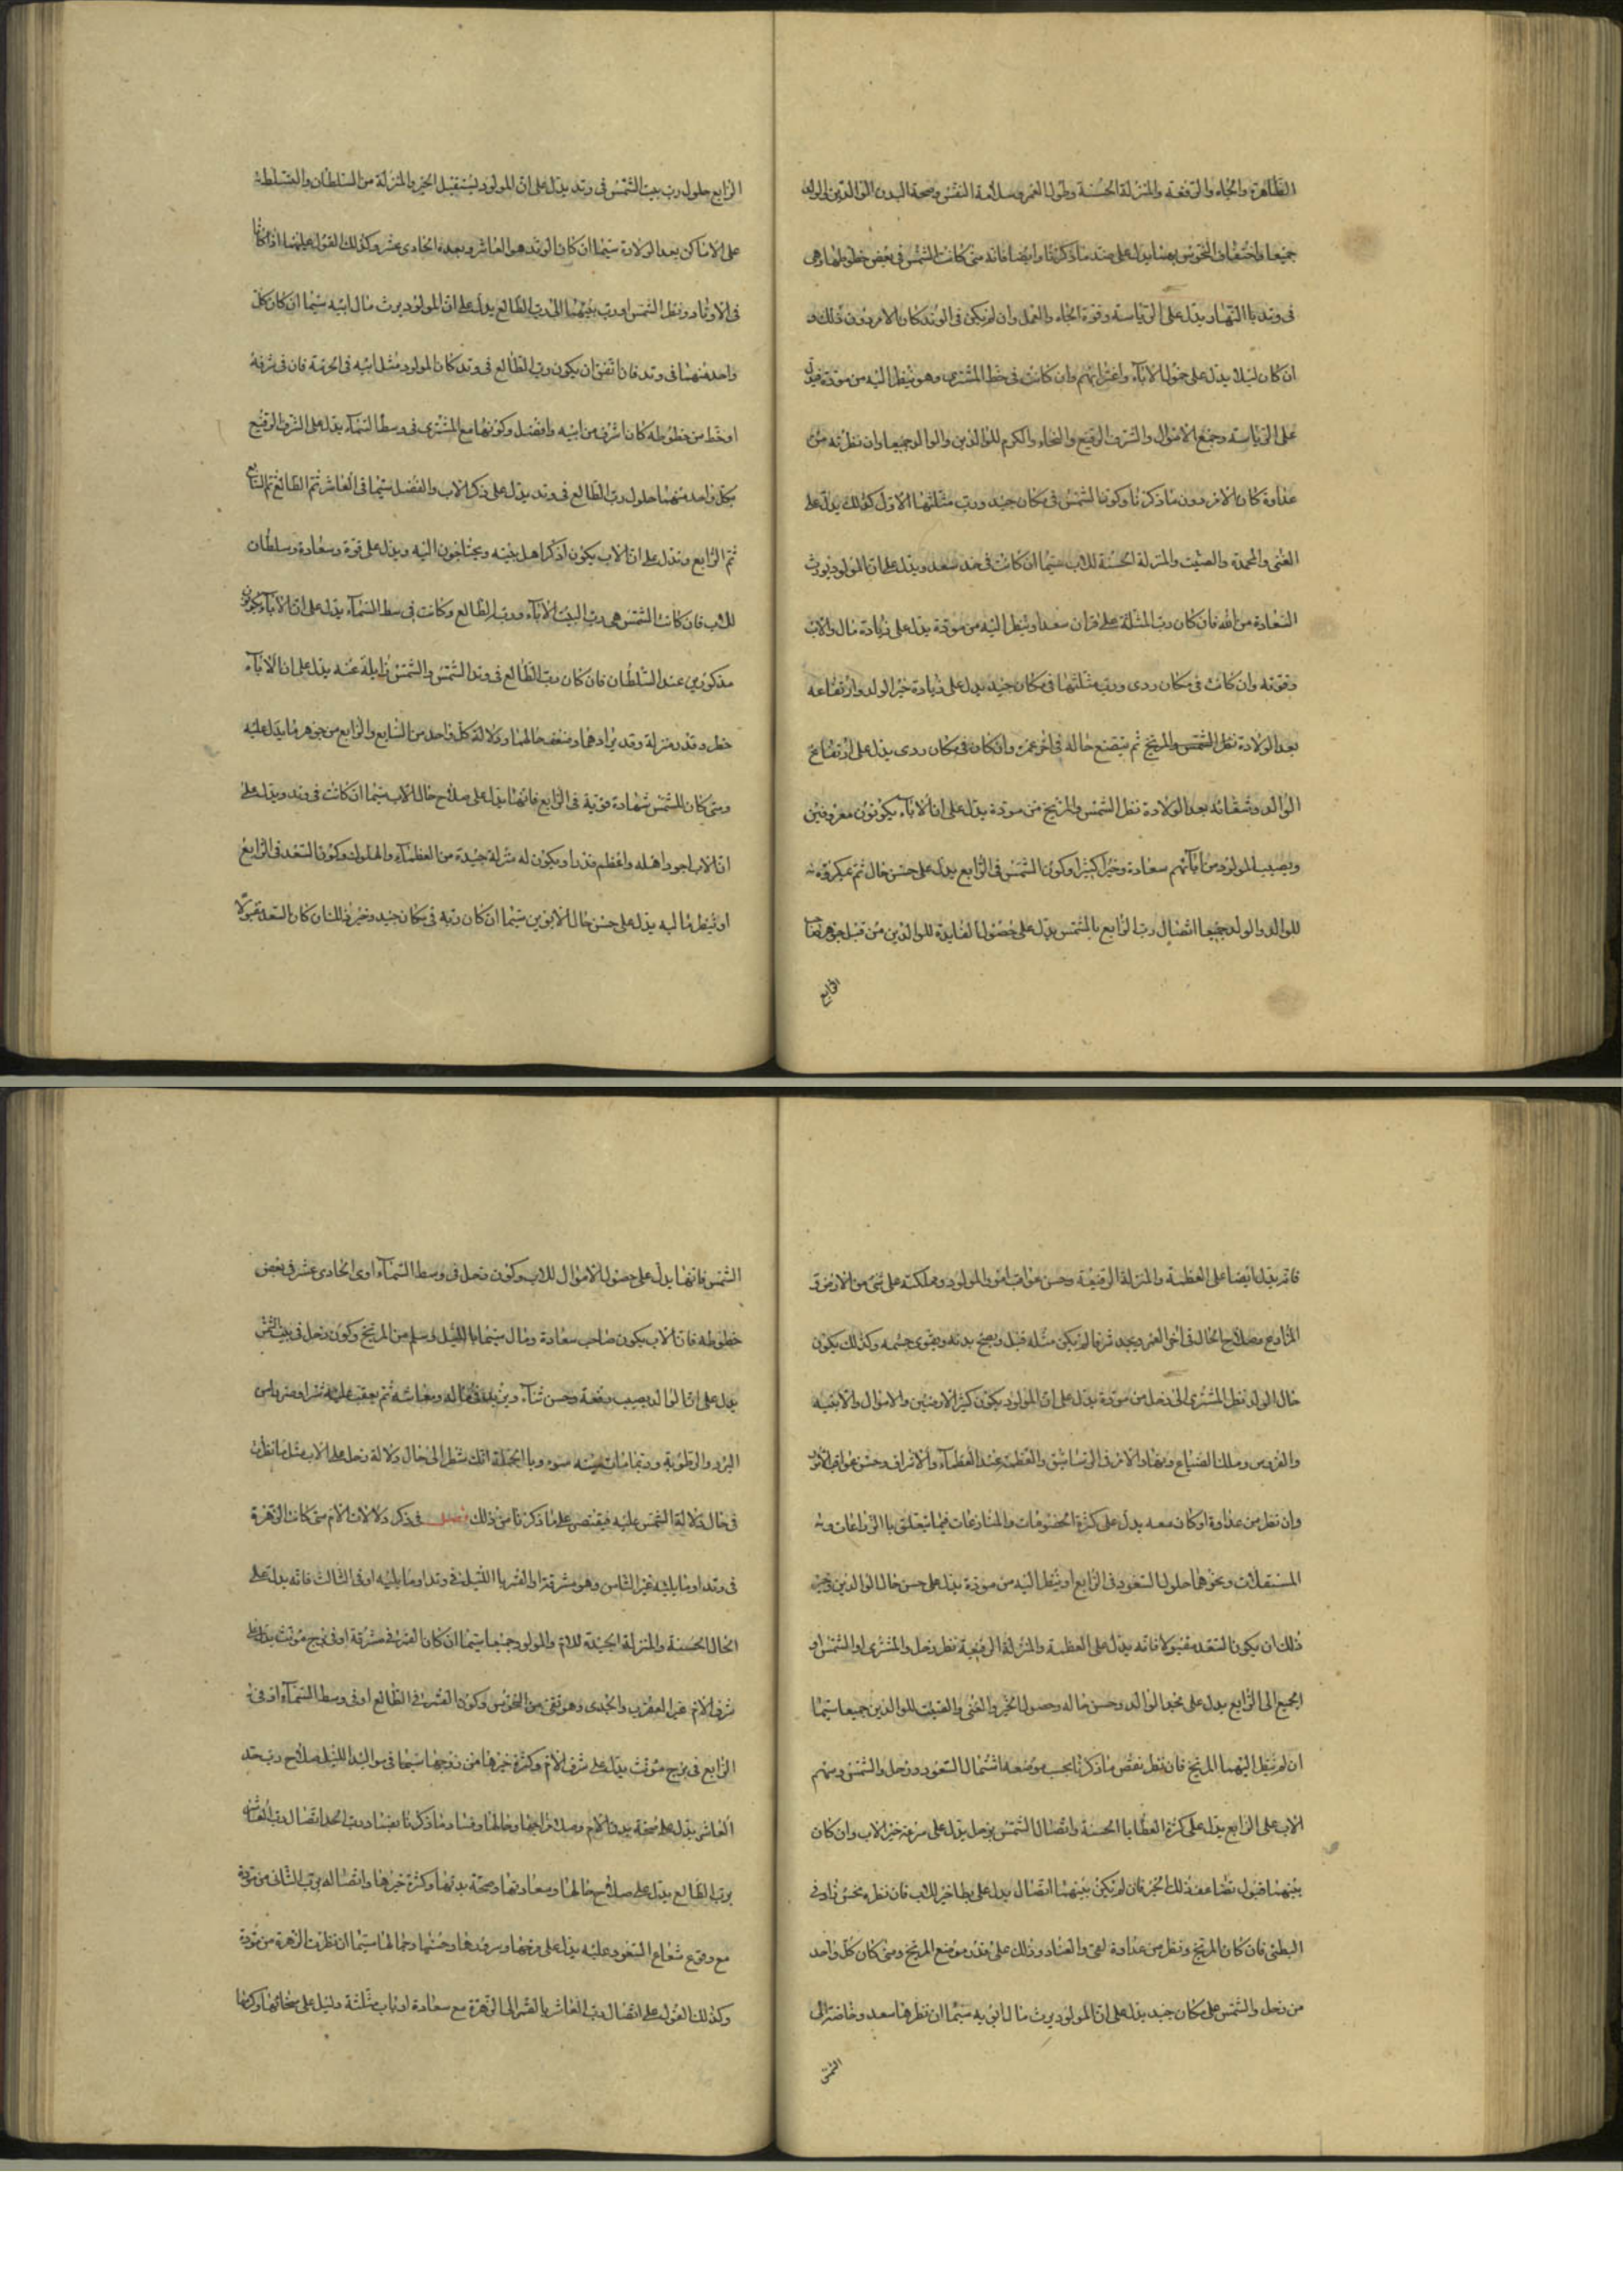 الظاهرة والجاه والرفعة والمنزلة الحسنة وطول العمر وسلامة النفس وصحة البدن الوالدين والولد
جميعا واختفاف النحوس بهما يدل على ضد ما ذكرنا وايضا فانه متى كانت الشمس في بعض حظوظها وهى
فى وتد با النهار يدل على الرياسة وقوة الجاه والعمل وان لم يكن فى الوتد كان الامر دون ذلك و
ان كان ليلا يدل على خمول الاباء واغترابهم وان كانت فى حظ المشترى وهو ينظر اليه من مودة فيدل
على الرياسة وجمع الاموال والشرف الرفيع والسخاء والكرم للوالدين والوالد جميعا وان نظرته من
عداوة كان الامر دون ما ذكرنا وكون الشمس فى مكان جيد ورب مثلثتها الاول كذلك يدل على
الغنى والمحمدة والصيت والمنزلة الحسنة للاب سيما ان كانت فى حد سعد ويدل على ان المولود يورث
السعادة من الله فان كان رب المثلثة على قران سعد او ينظر اليه من مودة يدل على زيادة مال والاب
وقوته وان كانت فى مكان ردى ورب مثلثتها فى مكان جيد يدل على زيادة خير الولد وارتفاعه
بعد الولادة نظر الشمس والمريخ ثم يتضع حاله فى اخر عمره وان كان فى مكان ردى يدل على ارتفاع
الوالد وشقائه بعد الولادة نظر الشمس والمريخ من مودة يدل على ان الاباء يكونون معروفين
ويصيب المولود من ابائهم سعادة وخيرا كثيرا وكون الشمس فى الرابع يدل على حسن حال ثم مكروه
للوالد والولد جميعا اتصال رب الرابع بالشمس يدل على حصول الفايدة للوالدين من قبل جوهر
الرابع
الرابع حلول رب بيت الشمس فى وتد يدل على ان المولود يستقبل الخير والمنزلة من السلطان والتسلطة
على الاماكن بعد الولادة سيما ان كان الوتد هو العاشر وبعده الحادى عشر وكذلك القول عليهما اذا كانا
فى الاوتاد ونظر الشمس اورب بيتهما الى رب الطالع يدل على ان المولود يرث مال ابيه سيما ان كان كل
واحد منهما فى وتد فان اتفق ان يكون رب الطالع فى وتد كان المولود مثل ابيه فى الحرمة فان فى شرفه
او حظ من حظوظه كان اشرف من ابيه وافضل وكونهما مع المشترى فى وسط السماء يدل على الشرف الرفيع
بكل واحد منهما حلول رب الطالع فى وتد يدل على ذكر الاب والفضل سيما فى العاشر ثم الطالع ثم السابع
ثم الرابع وتدل على ان الاب يكون اذكر اهل بيته ويحتاجون اليه ويدل على قوة وسعادة وسلطان
للاب فان كانت الشمس هى رب البيت الاباء ورب الطالع وكانت فى سط السماء يدل على ان الاباء يكونون
مذكورين عند السلطان فان كان رب الطالع فى وتد الشمس والشمس زايلة عنه يدل على ان الاباء
خطر وقدر منزلة وقد يرادهما وضعف حالهما ودلالة كل واحد من السابع والرابع من جوهر ما يدل عليه
ومتى كان للشمس شهادة قوية فى الرابع فانها يدل على صلاح حال الاب سيما ان كانت فى وتد ويدل على
ان الاب اجود اهله واعظم قدرا ويكون له منزلة جيدة من العظماء والملوك وكون السعد فى الرابع
او ينظر ما ليه يدل على حسن حال الابوين سيما ان كان ربه فى مكان جيد وخير ذلك ان كان السعد مقبولا
فانه يدل ايضا على العظمة والمنزلة الرفيعة وحسن عواقب امور المولود ومملكته على شئ من الارض و
المزارع صلاح الحال فى اخر العمر ويجيد شرفا لم يكن مثله قبل ويصح بدنه ويقوى جسمه وكذلك يكون
حال الولد نظر المشترى الى زحل من مودة يدل على ان المولود يكون كثير الارضين والاموال والابنية
والغروس وملك الضياع ونفاد الامر فى الرساتيق والعظمة عند العظماء والاشراف وحسن عواقب الامور
وان نظر من عداوة او كان معه يدل على كثرة الخصومات والمنازعات فيما يتعلق با الزراعات و
المستغلات ونحوهما حلول السعود فى الرابع او ينظر اليه من مودة يدل على حسن حال الوالدين وخير
ذلك ان يكون السعد مقبولا فانه يدل على العظمة والمنزلة الرفيعة نظر زحل والمشترى او الشمس او
الجميع الى الرابع يدل على مجد الوالد وحسن حاله وحصول الخير والغنى والصيت للوالدين جميعا سيما
ان لم ينظر اليهما المريخ فان نظر نقص ما ذكرنا بحسب موضعه اشتمال السعود وزحل والشمس وسهم
الاب على الرابع يدل على كثرة العطايا الحسنة واتصال الشمس بزحل يدل على سرعة خير الاب وان كان
بينهما قبول تضاعف ذلك الخير فان لم يكن بينهما اتصال يدل على بطا خير للاب فان نظره نحس زاد فى
البطئ فان كان المريخ ونظر من عداوة لقى والعناد وذلك على قدر موضع المريخ ومتى كان كل واحد
من زحل والشمس على مكان جيد يدل على ان المولود يرث مال ابويه سيما ان نظرهما سعد وخاصة الى
الشمس
الشمس فانها يدل على حصول الاموال للاب وكون زحل فى وسط السماء او فى الحادى عشر فى بعض
حظوظه فان الاب يكون صاحب سعادة ومال سيما با الليل وسلم من المريخ وكون زحل فى بيت الشمس
يدل على ان الوالد يصيب رفعة وحسن ثناء ويزيد فى ماله ومعاشه ثم يعقب عليه شرا ومرياس
البرد والرطوبة وربما مات ميتة سوء وبا الجملة انك تنظر الى حال دلالة زحل على الاب مثل ما نظرت
فى حال دلالة الشمس عليه فيقتصر على ما ذكرنا من ذلك فصل فى ذكر دلالات الام متى كانت الزهرة
فى وتد او ما يليه غير الثامن وهو مشرقة او القمر با الليل فى وتد او ما يليه او فى الثالث فانه يدل على
الحال الحسنة والمنزلة الجيدة للام والمولود جميعا سيما ان كان القمر فى مشرقة او فى برج مونث يدل على
شرف الام غير العقرب والجدى وهو نقى من النحوس وكون القمر فى الطالع او فى وسط السماء او فى
الرابع فى برج مونث يدل على شرف الام وكثرة خيرها من زوجها سيما فى مواليد الليل صلاح رب حد
العاشر يدل على صحة بدن الام وصلاح مزاجها وحالها وفساد ما ذكرنا بفساد رب الحد اتصال رب العاشر
برب الطالع يدل على صلاح حالها وسعادتها وصحة بدنها وكثرة خيرها واتصاله برب الثانى من مودة
مع وقوع شعاع السعود عليه يدل على فرحها وسرورها وحسنها وجمالها سيما ان نظرت الزهرة من مودة
وكذلك القول على اتصال رب العاشر بالقمر الى الزهرة مع سعادة ارباب مثلثة دليل على سخائها وكرمها